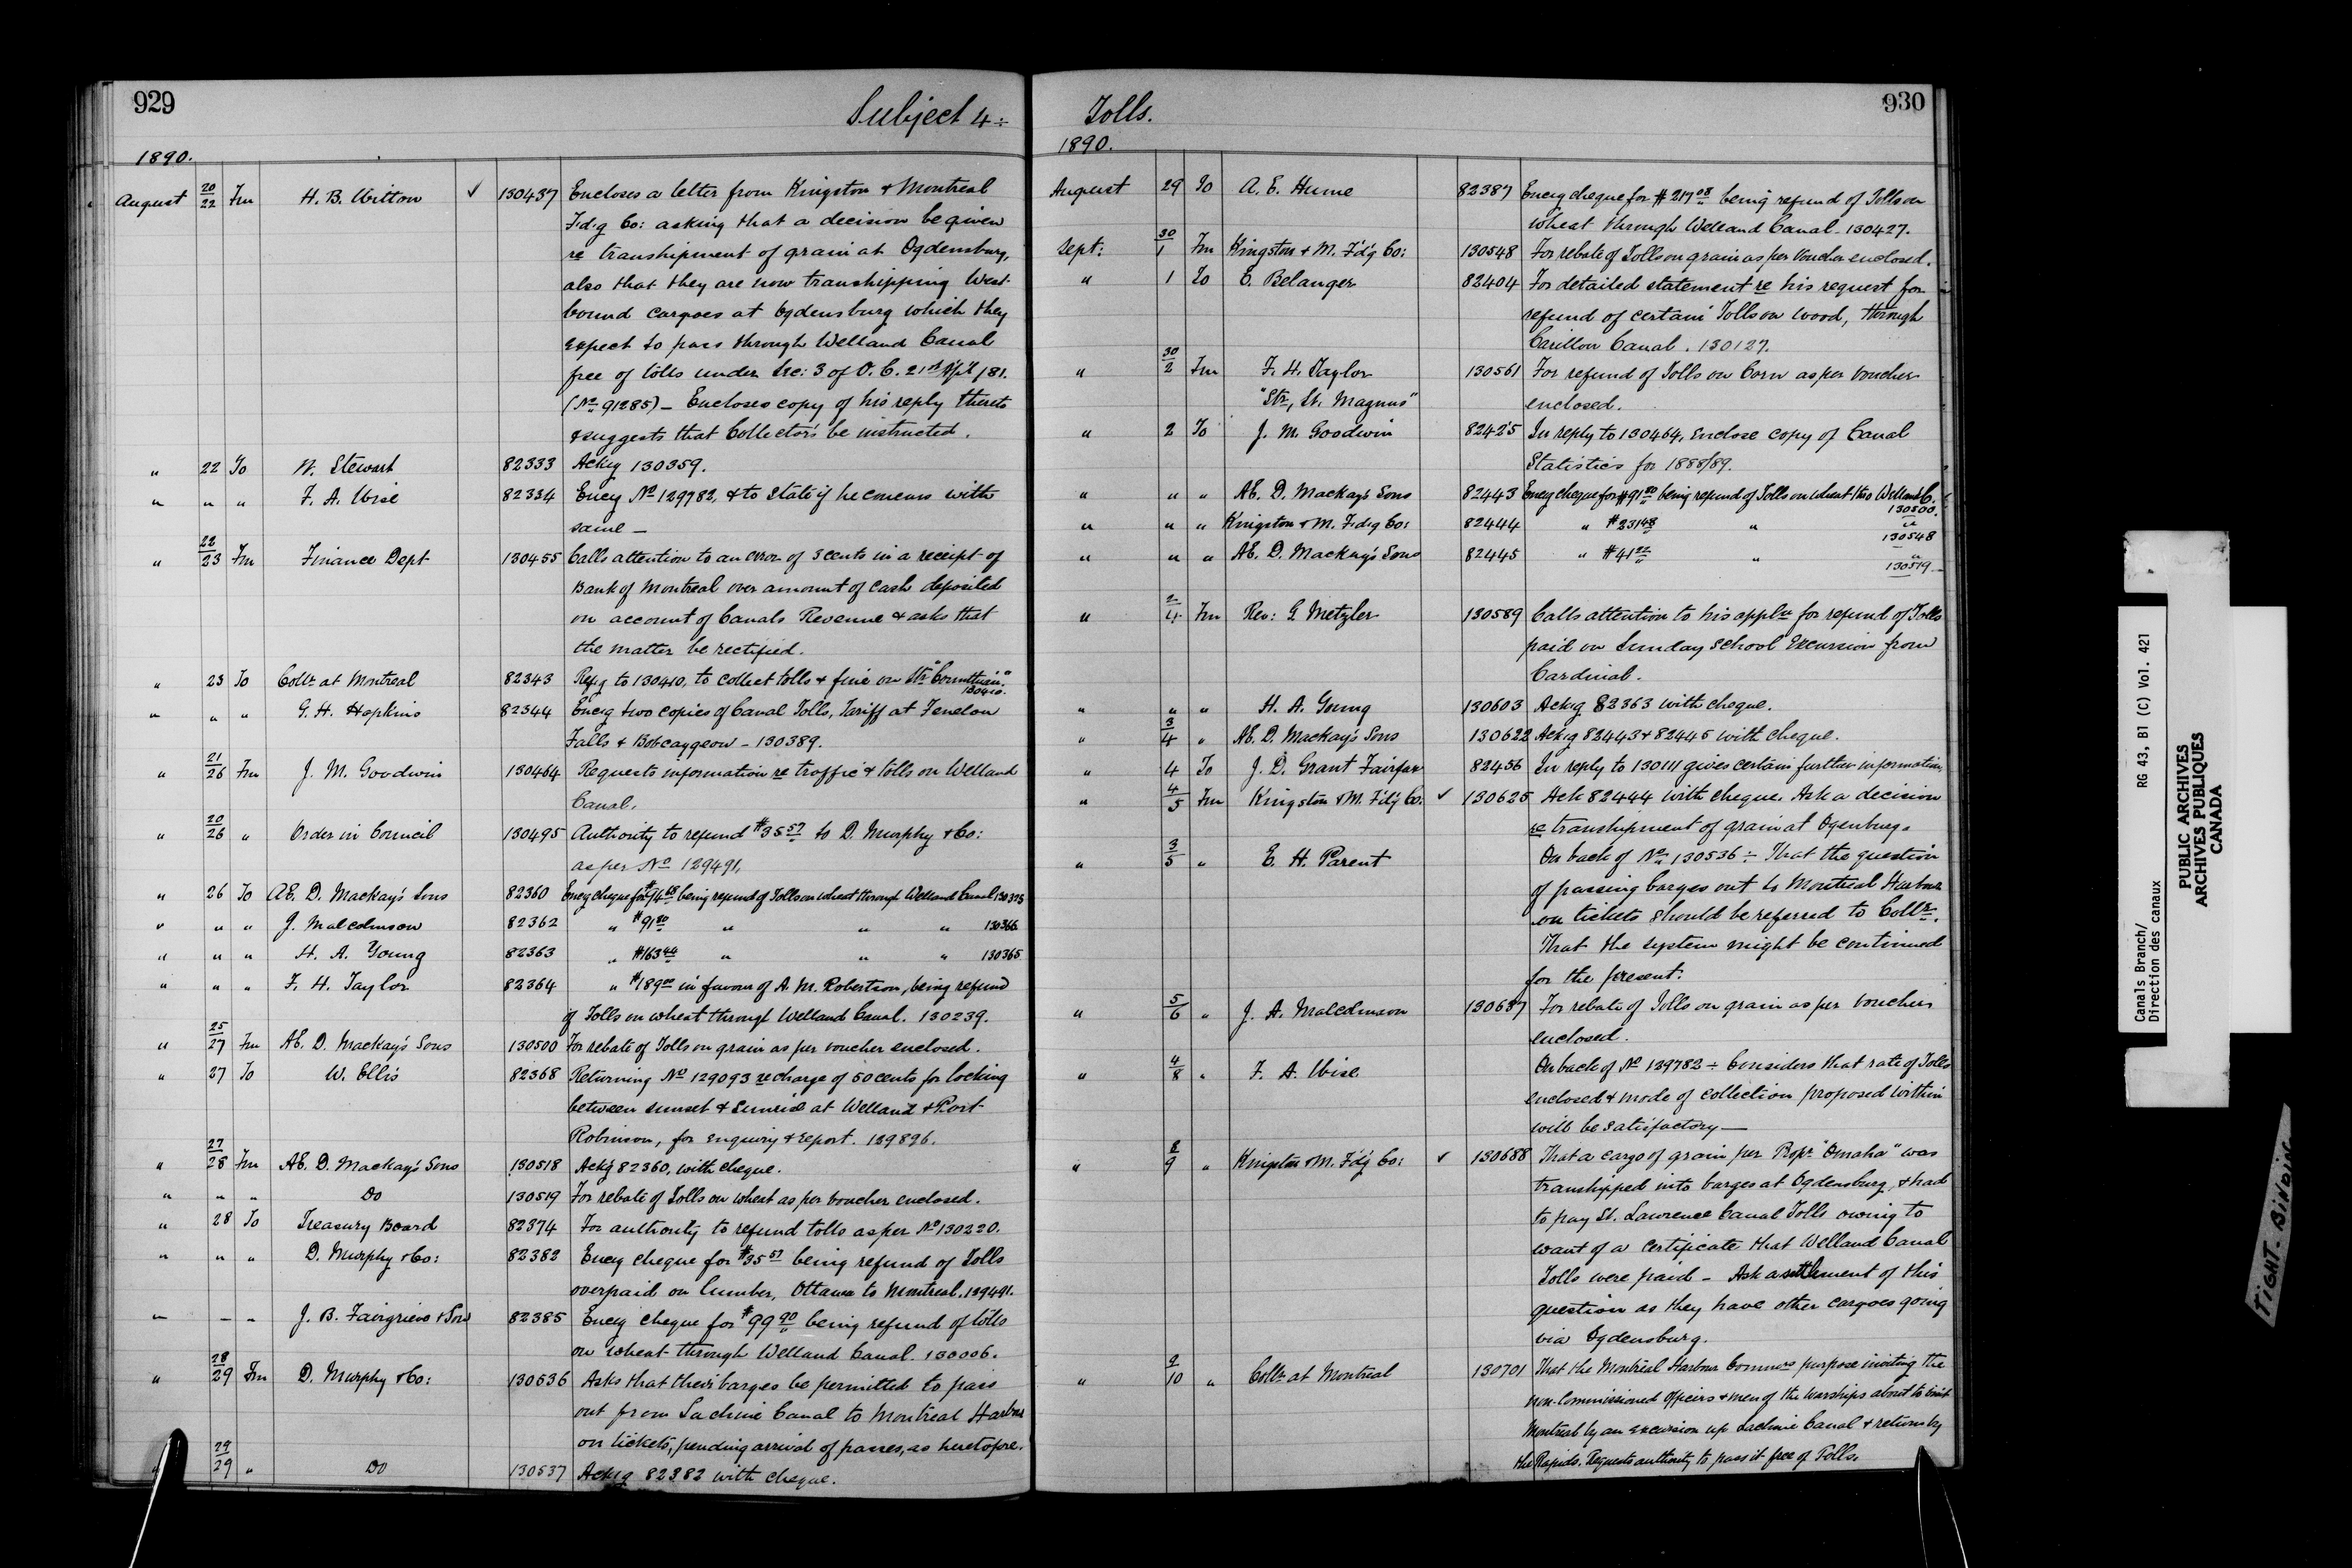 929
Subject 4 ÷
1890.
August 20/22 Fm H. B. Witton ✓ 130437 Encloses a letter from Kingston & Montreal
Fd'g Co: asking that a decision be given
re transhipment of grain at Ogdensburg,
also that they are now transhipping West-
bound cargoes at Ogdensburg which they
expect to pass through Welland Canal
free of tolls under Sec: 3 of O. C. 21st /81.
(No 91285) — Encloses copy of his reply thereto
& suggests that Collectors be instructed.
" 22 To W. Stewart 82333 Ackg 130359.
" " " F. A. Wise 82334 Encg No 129782, & to State if he concurs with
same —
" 22/23 Fm Finance Dept 130455 Calls attention to an error of 3 cents in a receipt of
Bank of Montreal over amount of Cash deposited
on account of Canals Revenue & asks that
the matter be rectified.
" 23 To Collr at Montreal 82343 Refg to 130410, to collect tolls & fine on Str "Corinthian."
130410.
" " " G. H. Hopkins 82344 Encg two copies of Canal Tolls, Tariff at Fenelon
Falls & Bobcaygeon — 130389.
" 21/26 Fm J. M. Goodwin 130464 Requests information re traffic & tolls on Welland
Canal.
" 20/26 " Order in Council 130495 Authority to refund $35 57 to D. Murphy & Co:
as per No 129491,
" 26 To AE. D. Mackay's Sons 82360 Encg cheque for being refund of Tolls on wheat through Welland Canal
" " " J. Malcolmson 82362 " $91 80 " " " 130366
" " " H. A. Young 82363 " $163 44 " " " 130365
" " " F. H. Taylor 82364 " $189 00 in favour of A. M. Robertson, being refund
of Tolls on wheat through Welland Canal. 130239.
" 25/27 Fm AE. D. Mackay's Sons 130500 For rebate of Tolls on grain as per voucher enclosed.
" 27 To W. Ellis 82368 Returning No 129093 re charge of 50 cents for locking
between sunset & Sunrise at Welland & Port
Robinson, for enquiry & report. 129826.
" 27/28 Fm AE. D. Mackay's Sons 130518 Ack'g 82360, with cheque.
" " " Do 130519 For rebate of Tolls on wheat as per voucher enclosed.
" 28 To Treasury Board 82374 For authority to refund tolls as per No 130220.
" " " D. Murphy & Co: 82382 Encg cheque for $35 57 being refund of Tolls
overpaid on lumber, Ottawa to Montreal. 129491.
" – " J. B. Fairgrieve & Son 82385 Encg cheque for $99 90 being refund of tolls
on wheat through Welland Canal. 130006.
" 28/29 Fm D. Murphy & Co: 130536 Asks that their barges be permitted to pass
out from Lachine Canal to Montreal Harbour
on tickets, pending arrival of passes, as heretofore.
" 29/29 " Do 130537 Ackg 82382 with cheque.
930
Tolls.
1890.
August 29 To A. E. Hume 82387 Encg cheque for $217 08 being refund of Tolls on
wheat through Welland Canal. 130427.
Sept: 30/1 Fm Kingston & M. F'd'g Co: 130548 For rebate of Tolls on grain as per voucher enclosed.
" 1 To E. Belanger 82404 For detailed statement re his request for
refund of certain Tolls on wood, through
Carillon Canal. 130127.
" 30/2 Fm F. H. Taylor 130561 For refund of Tolls on Corn as per voucher
"Str, St. Magnus" enclosed.
" 2 To J. M. Goodwin 82425 In reply to 130464, enclose copy of Canal
Statistics for 1888/89.
" " " AE. D. Mackay's Sons 82443 Encg cheque for $91 80 being refund of Tolls on wheat thro Welland C.
130500.
" " " Kingston & M. Fdg Co: 82444 " $231 48 " "
130548
" " " AE. D. Mackay's Sons 82445 " $41 22 " "
130519
" 2/4 Fm Rev: G. Metzler 130589 Calls attention to his appln for refund of Tolls
paid on Sunday School Excursion from
Cardinal.
" " " H. A. Young 130603 Ackg 82363 with cheque.
" 3/4 " AE. D. Mackay's Sons 130622 Ackg 82443 & 82445 with cheque.
" 4 To J. D. Grant Fairfax 82456 In reply to 130111 gives certain further information,
" 4/5 Fm Kingston & M. F'd'g Co. ✓ 130625 Ack 82444 with cheque. Ask a decision
re transhipment of grain at Ogenburg.
" 3/5 " E. H. Parent On back of No 130536 ÷ That the question
of passing barges out to Montreal Harbour
on tickets should be referred to Collr.
That the system might be continued
for the present.
" 5/6 " J. A. Malcolmson 130637 For rebate of Tolls on grain as per voucher
enclosed.
" 4/8 " F. A. Wise On back of No 129782 ÷ Considers that rate of Tolls
enclosed & mode of collection proposed within
will be satisfactory —
" 8/9 " Kingston & M. F'd'g Co: ✓ 130688 That a cargo of grain per Propr "Omaha" was
transhipped into barges at Ogdensburg, & had
to pay St. Lawrence Canal Tolls owing to
want of a certificate that Welland Canal
Tolls were paid — Ask a settlement of this
question as they have other cargoes going
via Ogdensburg.
" 9/10 " Collr at Montreal 130701 That the Montreal Harbour Commrs purpose inviting the
non-Commissioned Officers & men of the Warships about to visit
Montreal by an excursion up Lachine Canal & return by
the Rapids. Requests authority to pass it free of Tolls.
Canals Branch/ RG 43, B1 (C) Vol. 421
Direction des canaux
PUBLIC ARCHIVES
ARCHIVES PUBLIQUES
CANADA
TIGHT-BINDING